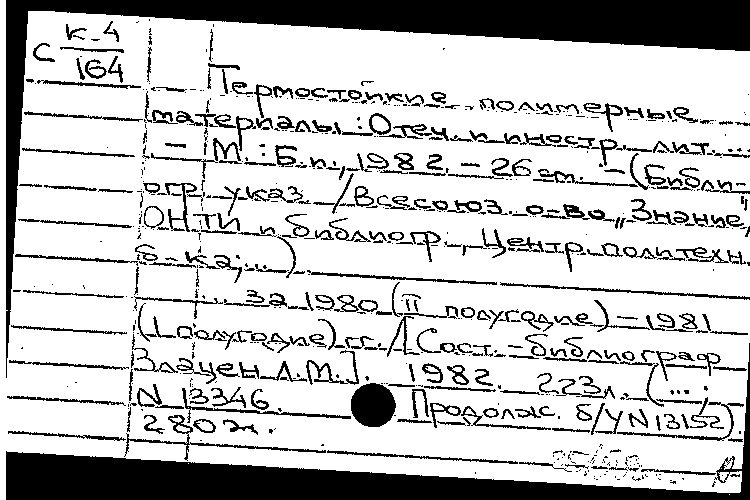 С К-4/164
Термостойкие полимерные
материалы : Отеч. и иностр. лит. ...
. - М. : Б.и., 1982. - 26 см. - (Библи-
огр. указ / Всесоюз. о-во „Знание",
ОНТИ и библиогр., Центр. политехн.
б-ка; ...).
... за 1980 (II полугодие) - 1981
(I полугодие) гг. / [Сост.-библиограф
Злацен Л.М.]. 1982. 223л. (...;
N 13346. Продолж. б/у N 13152).
280 экз.